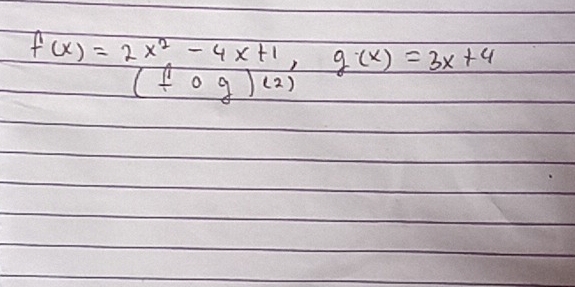 f(x) = 2x² - 4x+1, g(x) = 3x+4
(f o g)(2)